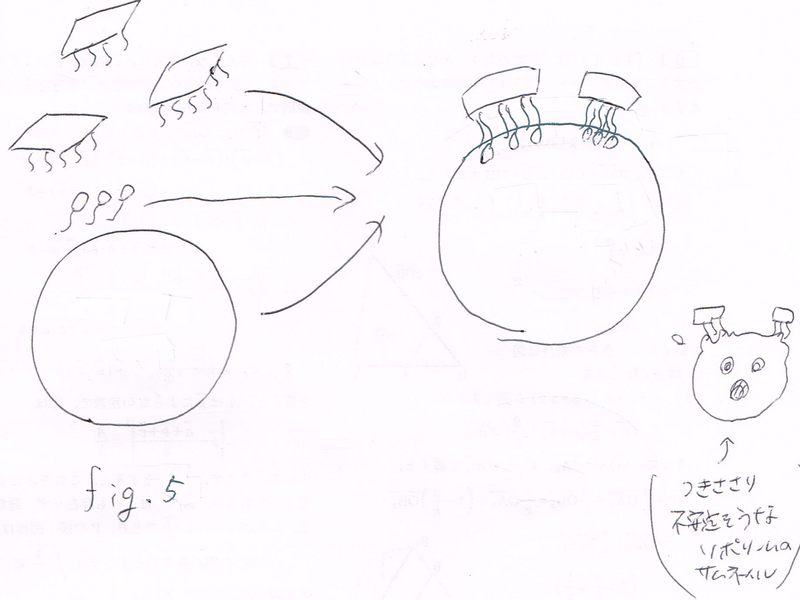 fig. 5
つきささり
不安定そうな
リポソームの
サムネイル